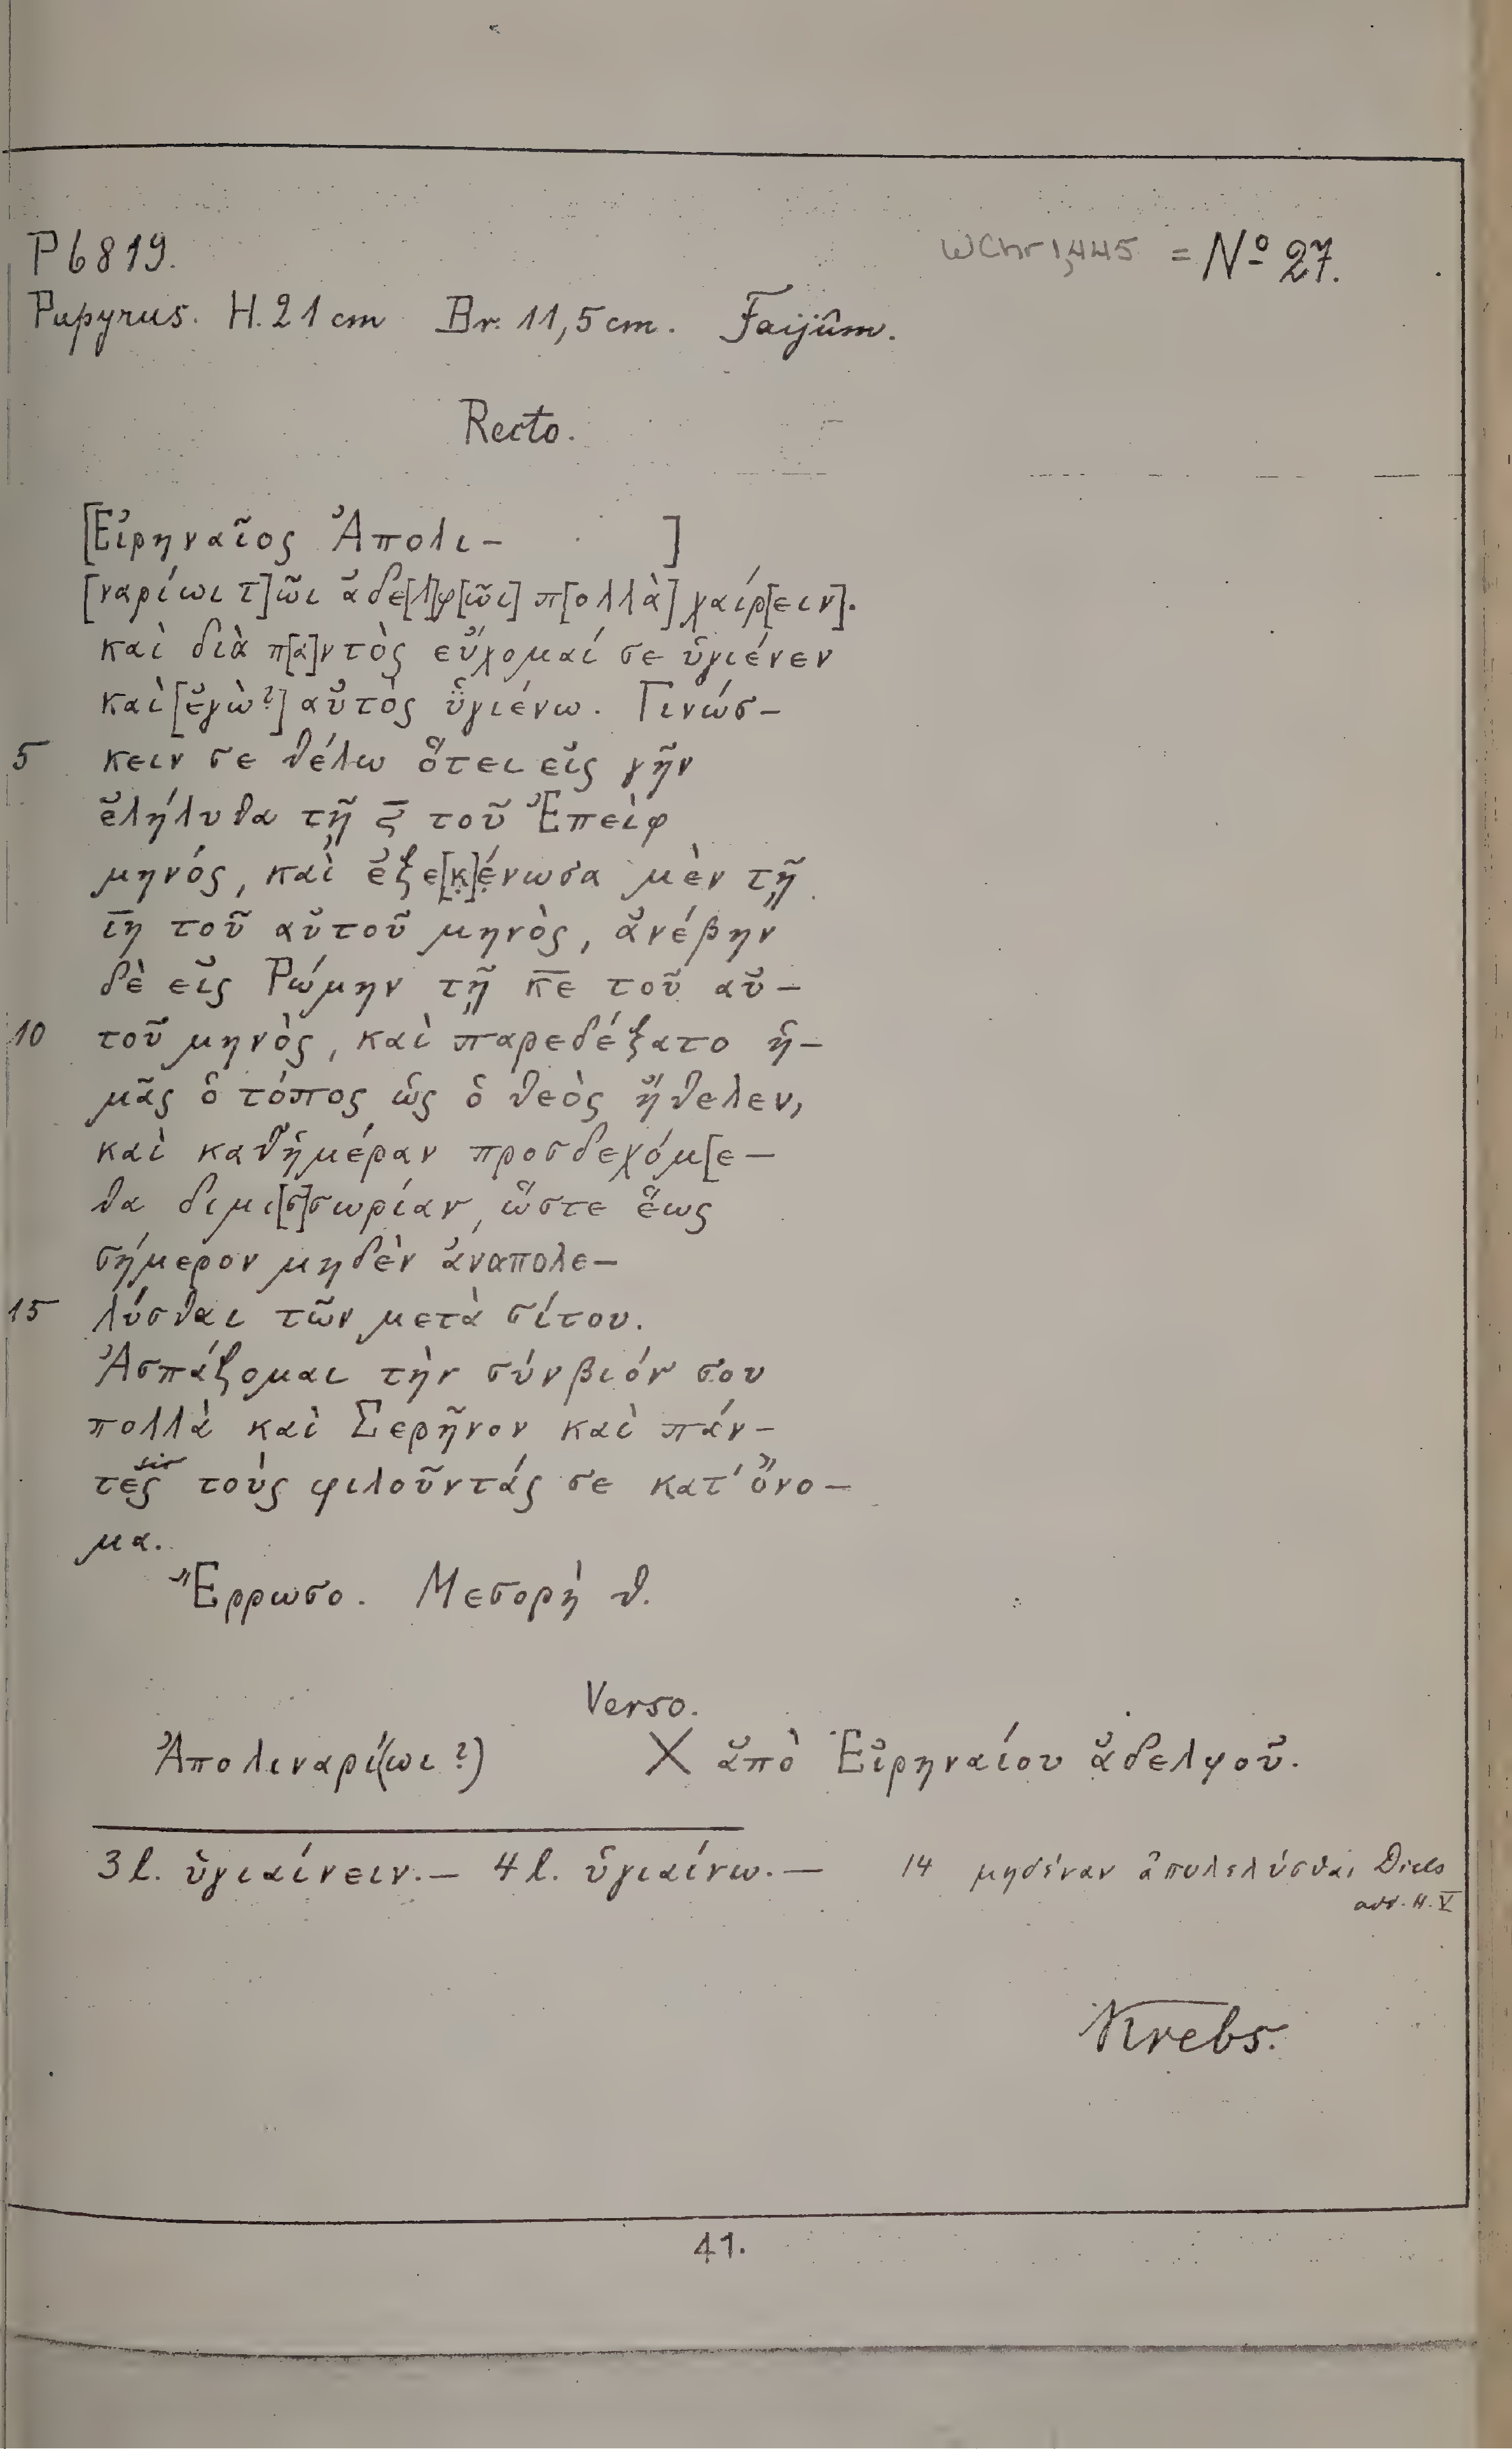 P 6819.
WChr 1,445 = Nº 27.
Papyrus. H. 21 cm Br. 11,5 cm. Faijûm.
Recto.
[Εἰρηναῖος Ἀπολι- ]
[ναρίωι τ]ῶι ἀδε[λ]φ[ῶι] π[ολλὰ] χαίρ[ειν].
καὶ διὰ π[α]ντὸς εὔχομαί σε ὑγιένεν
καὶ [ἐγὼ?] αὐτὸς ὑγιένω. Γινώσ-
5 κειν σε θέλω ὅτει εἰς γῆν
ἐλήλυθα τῇ ϛ̅ τοῦ Ἐπεὶφ
μηνός, καὶ ἐξε[κ̣]έ̣νωσα μὲν τῇ
ι̅η̅ τοῦ αὐτοῦ μηνὸς, ἀνέβην
δὲ εἰς Ῥώμην τῇ κ̅ε̅ τοῦ αὐ-
10 τοῦ μηνὸς, καὶ παρεδέξατο ἡ-
μᾶς ὁ τόπος ὡς ὁ θεὸς ἤθελεν,
καὶ καθ' ἡμέραν προσδεχόμ[ε-
θα διμι[σ]σωρίαν, ὥστε ἕως
σήμερον μηδὲν ἀναπολε-
15 λύσθαι τῶν μετὰ σίτου.
Ἀσπάζομαι τὴν σύνβιόν σου
πολλὰ καὶ Σερῆνον καὶ πάν-
sic
τες τοὺς φιλοῦντάς σε κατ' ὄνο-
μα.
Ἔρρωσο. Μεσορὴ θ.
Verso.
Ἀπολιναρί(ωι?) X ἀπὸ Εἰρηναίου ἀδελφοῦ.
3 l. ὑγιαίνειν. — 4 l. ὑγιαίνω. — 14 μηδέναν ἀπολελύσθαι Diels
Krebs.
41.